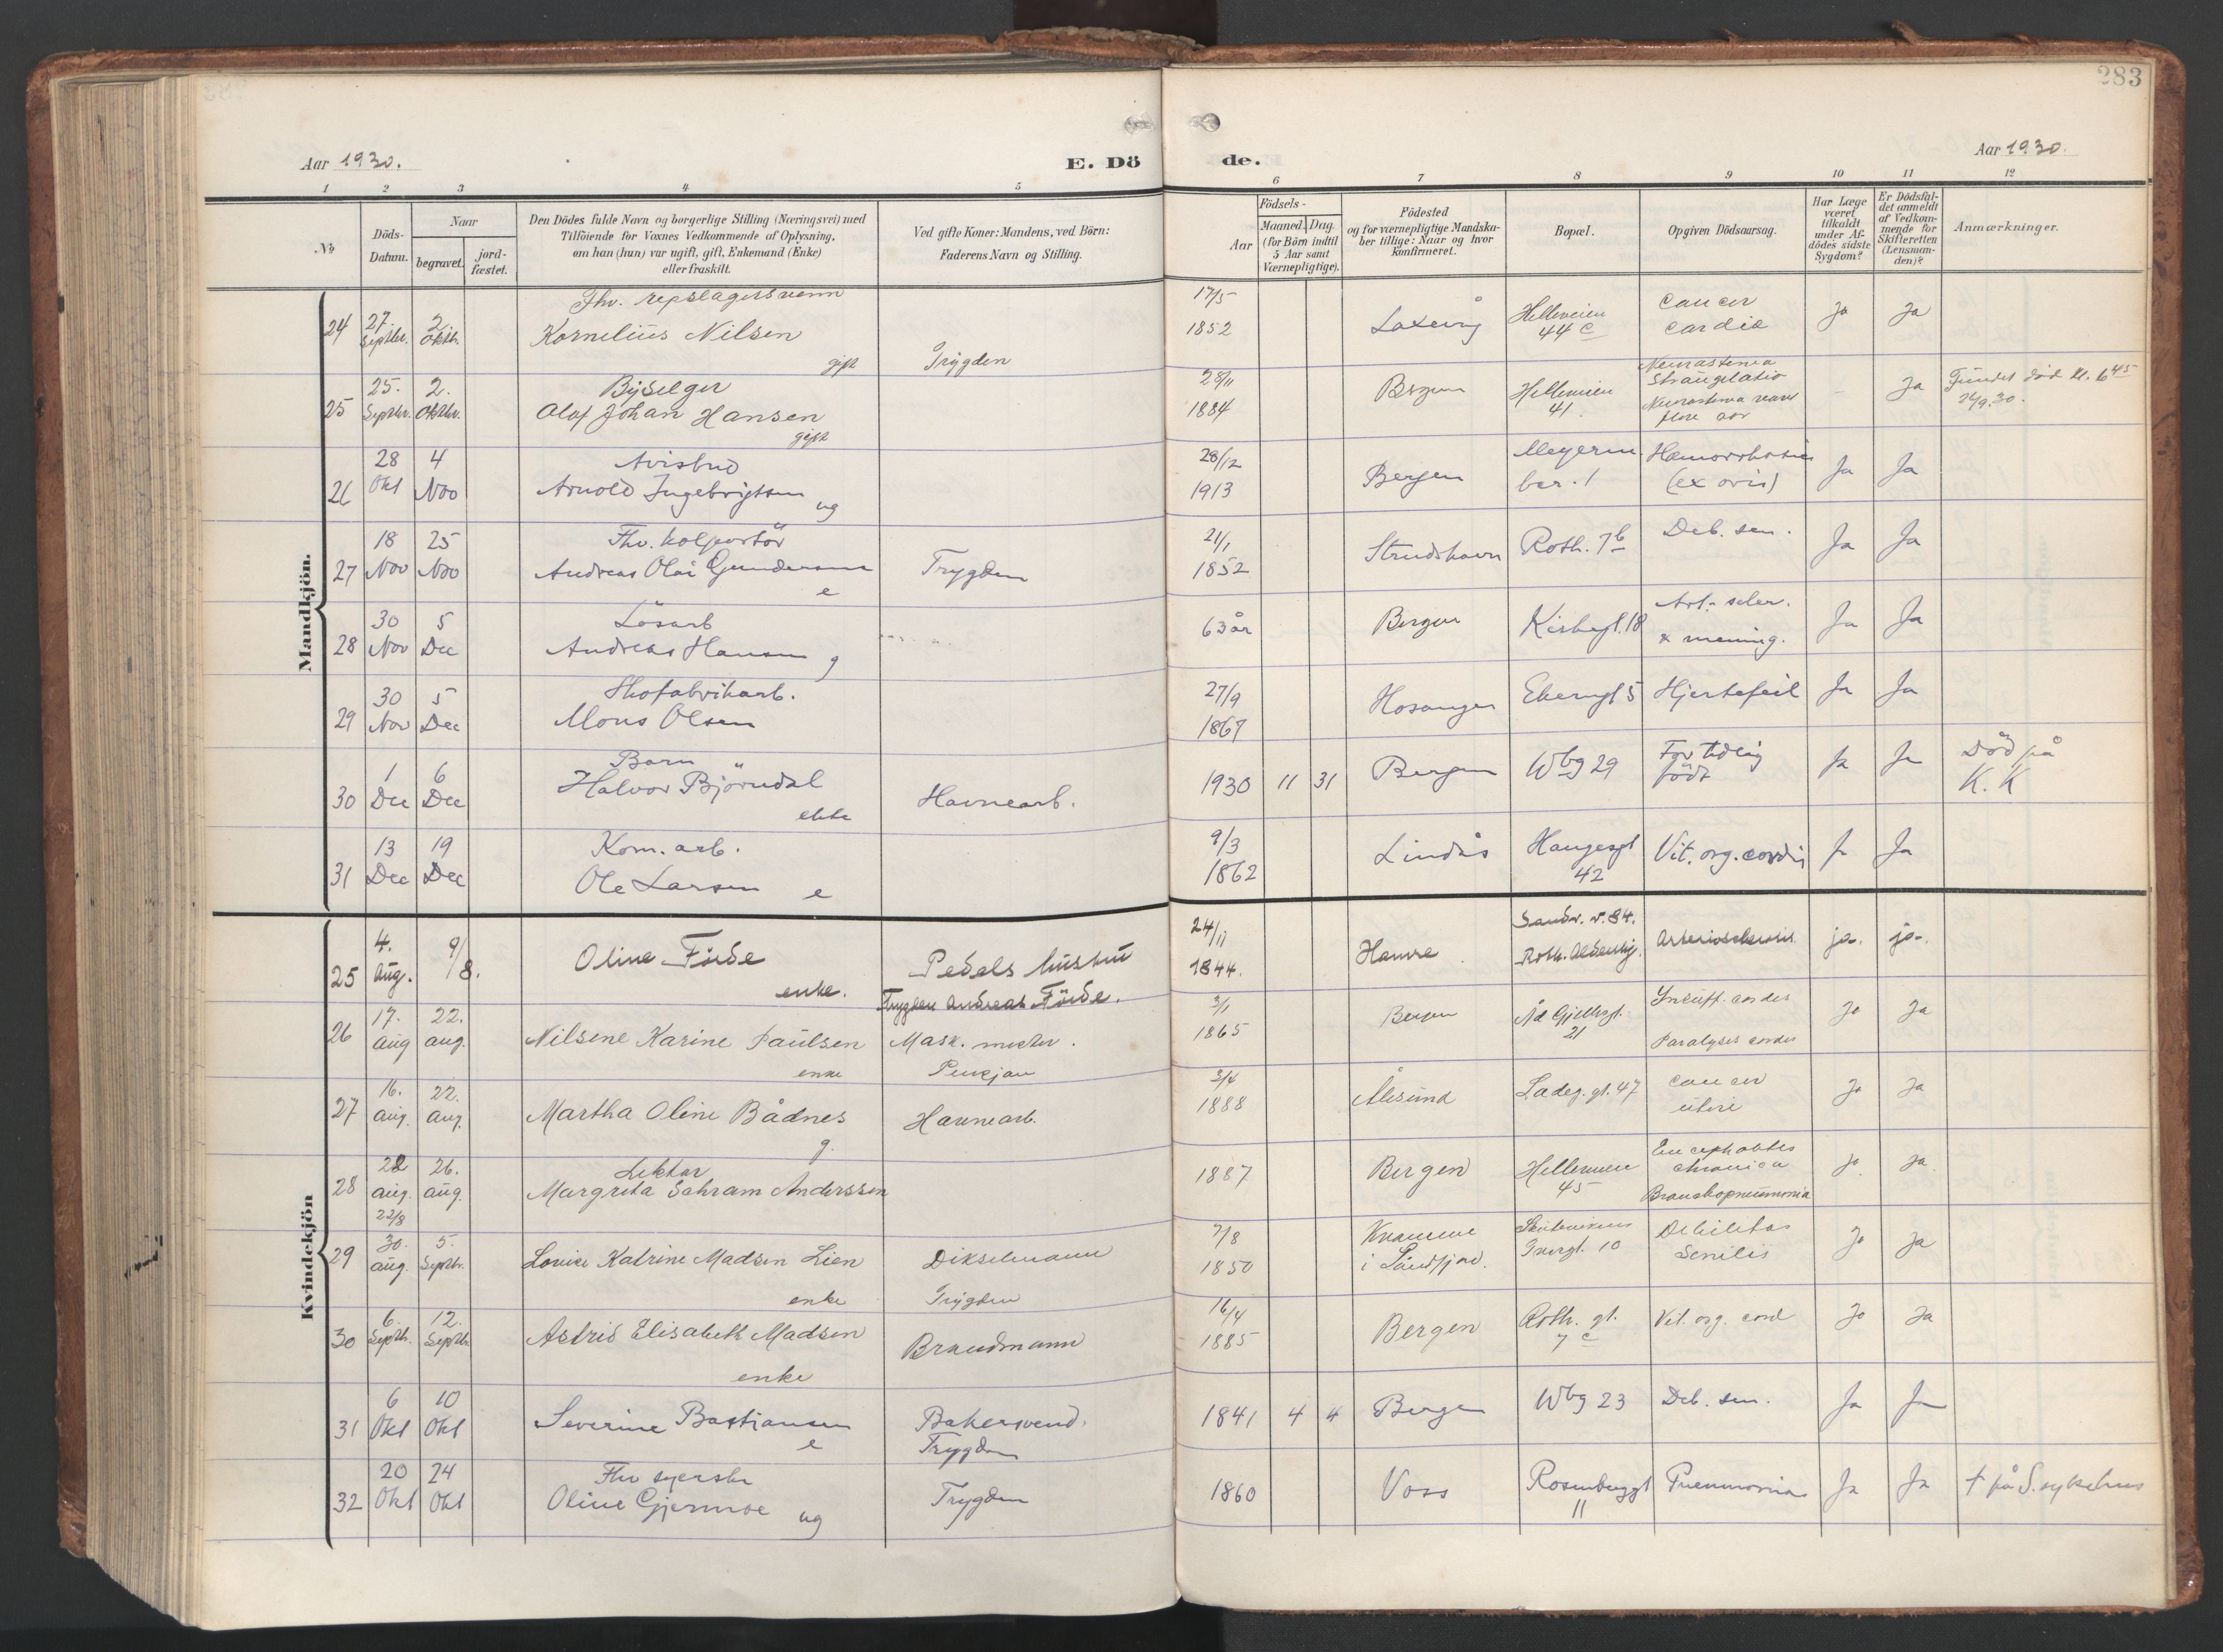 283
Aar 1930.
E. Dö
de.
Aar 1930.
1 2 3 4 5 6 7 8 9 10 11 12
No
Döds-Datum.
Naar
begravet.
jord-fæstet.
Den Dödes fulde Navn og borgerlige Stilling (Næringsvei) med
Tilföiende for Voxnes Vedkommende af Oplysning,
om han (hun) var ugift, gift, Enkemand (Enke)
eller fraskilt.
Ved gifte Koner: Mandens, ved Börn:
Faderens Navn og Stilling.
Födsels-
Aar
Maaned. Dag.
(for Börn indtil
5 Aar samt
Værnepligtige).
Födested
og for værnepligtige Mandska-
ber tillige: Naar og hvor
konfirmeret.
Bopæl.
Opgiven Dödsaarsag.
Har Læge
været
tilkaldt
under Af-
dödes sidste
Sygdom?
Er Dödsfal-
det anmeldt
af Vedkom-
mende for
Skifteretten
(Lensman-
den)?
Anmærkninger.
Mandkjön.
24 27. Septbr. 2. Oktbr. Fhv. repslagersvenn
Kornelius Nilsen gift Trygden 17/5 1852 Laxevåg Helleveien 44 c cancer cardia Ja Ja
25 25. Septbr. 2. Oktbr. Byselger
Olaf Johan Hansen gift 28/11 1884 Bergen Helleveien 41 Neurastenia Strangulatio
Neurastenia flere aar - Ja Fundet död kl. 6 45
26 28 Okt 4 Nov Avisbud
Arnold Ingebrigtsen ug 28/12 1913 Bergen Meyerm bar. 1 (ex oris) Ja Ja
27 18 Nov 25 Nov Fhv. kolportör
Andreas Olai Gundersen e Trygden 21/1 1852 Strudshavn Roth. 7 b Deb. sen. Ja Ja
28 30 Nov 5 Dec Lösarb
Andreas Hansen g 63 år Bergen Kirkegt. 18 Art.-scler. & mening. Ja Ja
29 30 Nov 5 Dec Skofabrikarb.
Mons Olsen 27/9 1867 Hosanger Ekerngt 5 Hjertefeil Ja Ja
30 1 Dec 6 Dec Barn
Halvor Björndal ekte Havnearb. 1930 11 31 Bergen Wbg 29 For tidlig födt Ja Ja Död på K. K
31 13 Dec 19 Dec Kom. arb.
Ole Larsen e 9/3 1862 Lindås Haugesgt 42 Vit. org. cordis Ja Ja
Kvindekjön
25 4. Aug. 9/8. Oline Förde enke. Pedels hustru
Trygden Andreas Förde. 24/11 1844. Hamre Sandv. v. 84.
Roth. Aldershj. Arteriosclerosis ja. ja.
26 17. aug 22. aug. Nilsene Karine Paulsen enke Mask. mester.
Pensjon 3/1 1865 Bergen Ad Gjellesgt. 21 Insuff. cordis
Paralysis cordis Ja Ja
27 16. aug. 22. aug. Martha Oline Bådnes g. Havnearb. 3/4 1888 Ålesund Ladeg. gt. 47 cancer uteri Ja Ja
28 22 aug. 22/8 26. aug. Lektor
Margreta Sahram Anderssen 1887 Bergen Helleveien 45 Encephalites chronica
Bronchopneumonia Ja Ja
29 30. aug. 5. Septbr. Louise Katrine Madsen Lien enke Dikselmann
Trygden 7/8 1850 i Sundfjord. Skuteviken 10 Debilitas Senilis Ja Ja
30 6. Septb. 12. Septbr. Astrid Elisabeth Madsen enke Brandmann 16/4 1885 Bergen Roth. gt. 7 c Vit. org. cord Ja Ja
31 6 Okt 10 Okt Severine Bastiansen e Bakersvend.
Trygden 1841 4 4 Bergen Wbg 23 Deb. sen. Ja Ja
32 20 Okt 24 Okt Fhv syerske
Oline Gjermoe ug Trygden 1860 Voss Rosenberggt 11 Pneumonia Ja Ja † på S. sykehus